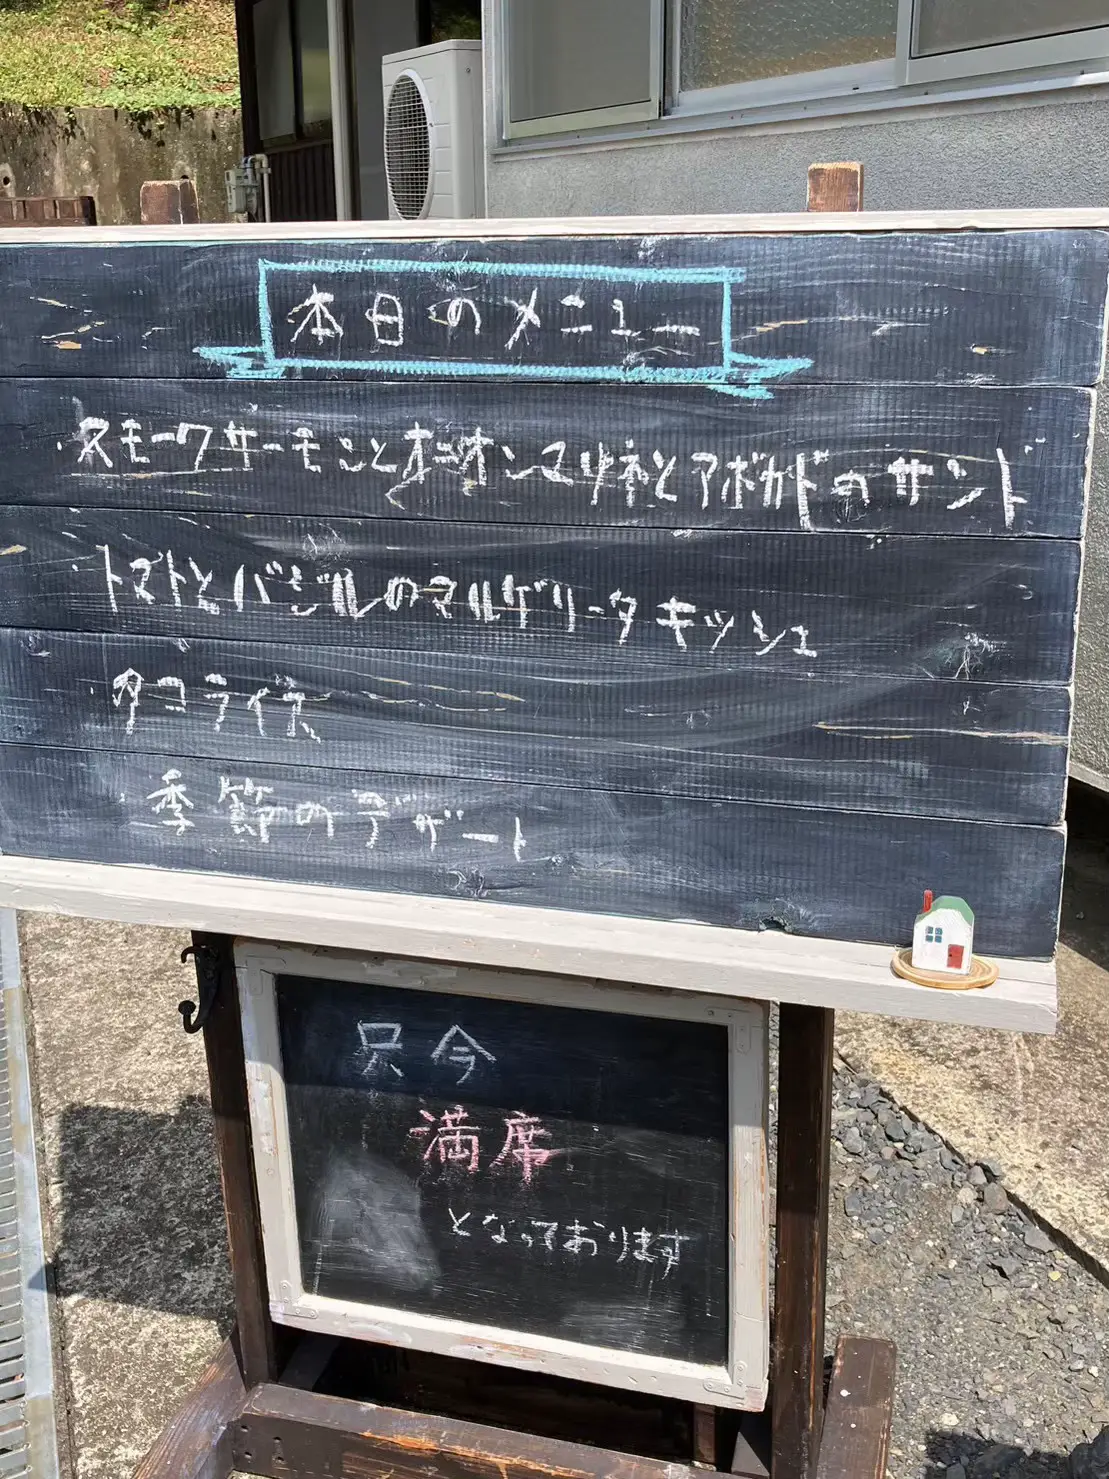 本日のメニュー
・スモークサーモンとオニオンマリネとアボカドのサンド
・トマトとバジルのマルゲリータキッシュ
・タコライス
・季節のデザート
只今
満席
となっております